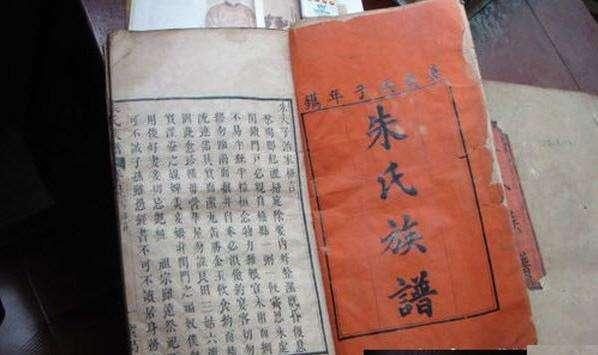 子年鐫
朱氏族譜
朱夫子治家格言
黎明即起灑掃庭除要內外整潔既昏便息
關鎖門戶必親自檢點一粥一飯當思來處
不易半絲半縷恆念物力維艱宜未雨而綢
繆勿臨渴而掘井自奉必須儉約宴客切勿
流連器具質而潔瓦缶勝金玉飲食約而精
園蔬愈珍饈勿營華屋勿謀良田三姑六婆
實淫盜之媒婢美妾嬌非閨門之福奴僕勿
用俊好妻妾切忌艷粧祖宗雖遠祭祀不
可不誠子孫雖愚經書不可不讀居身務